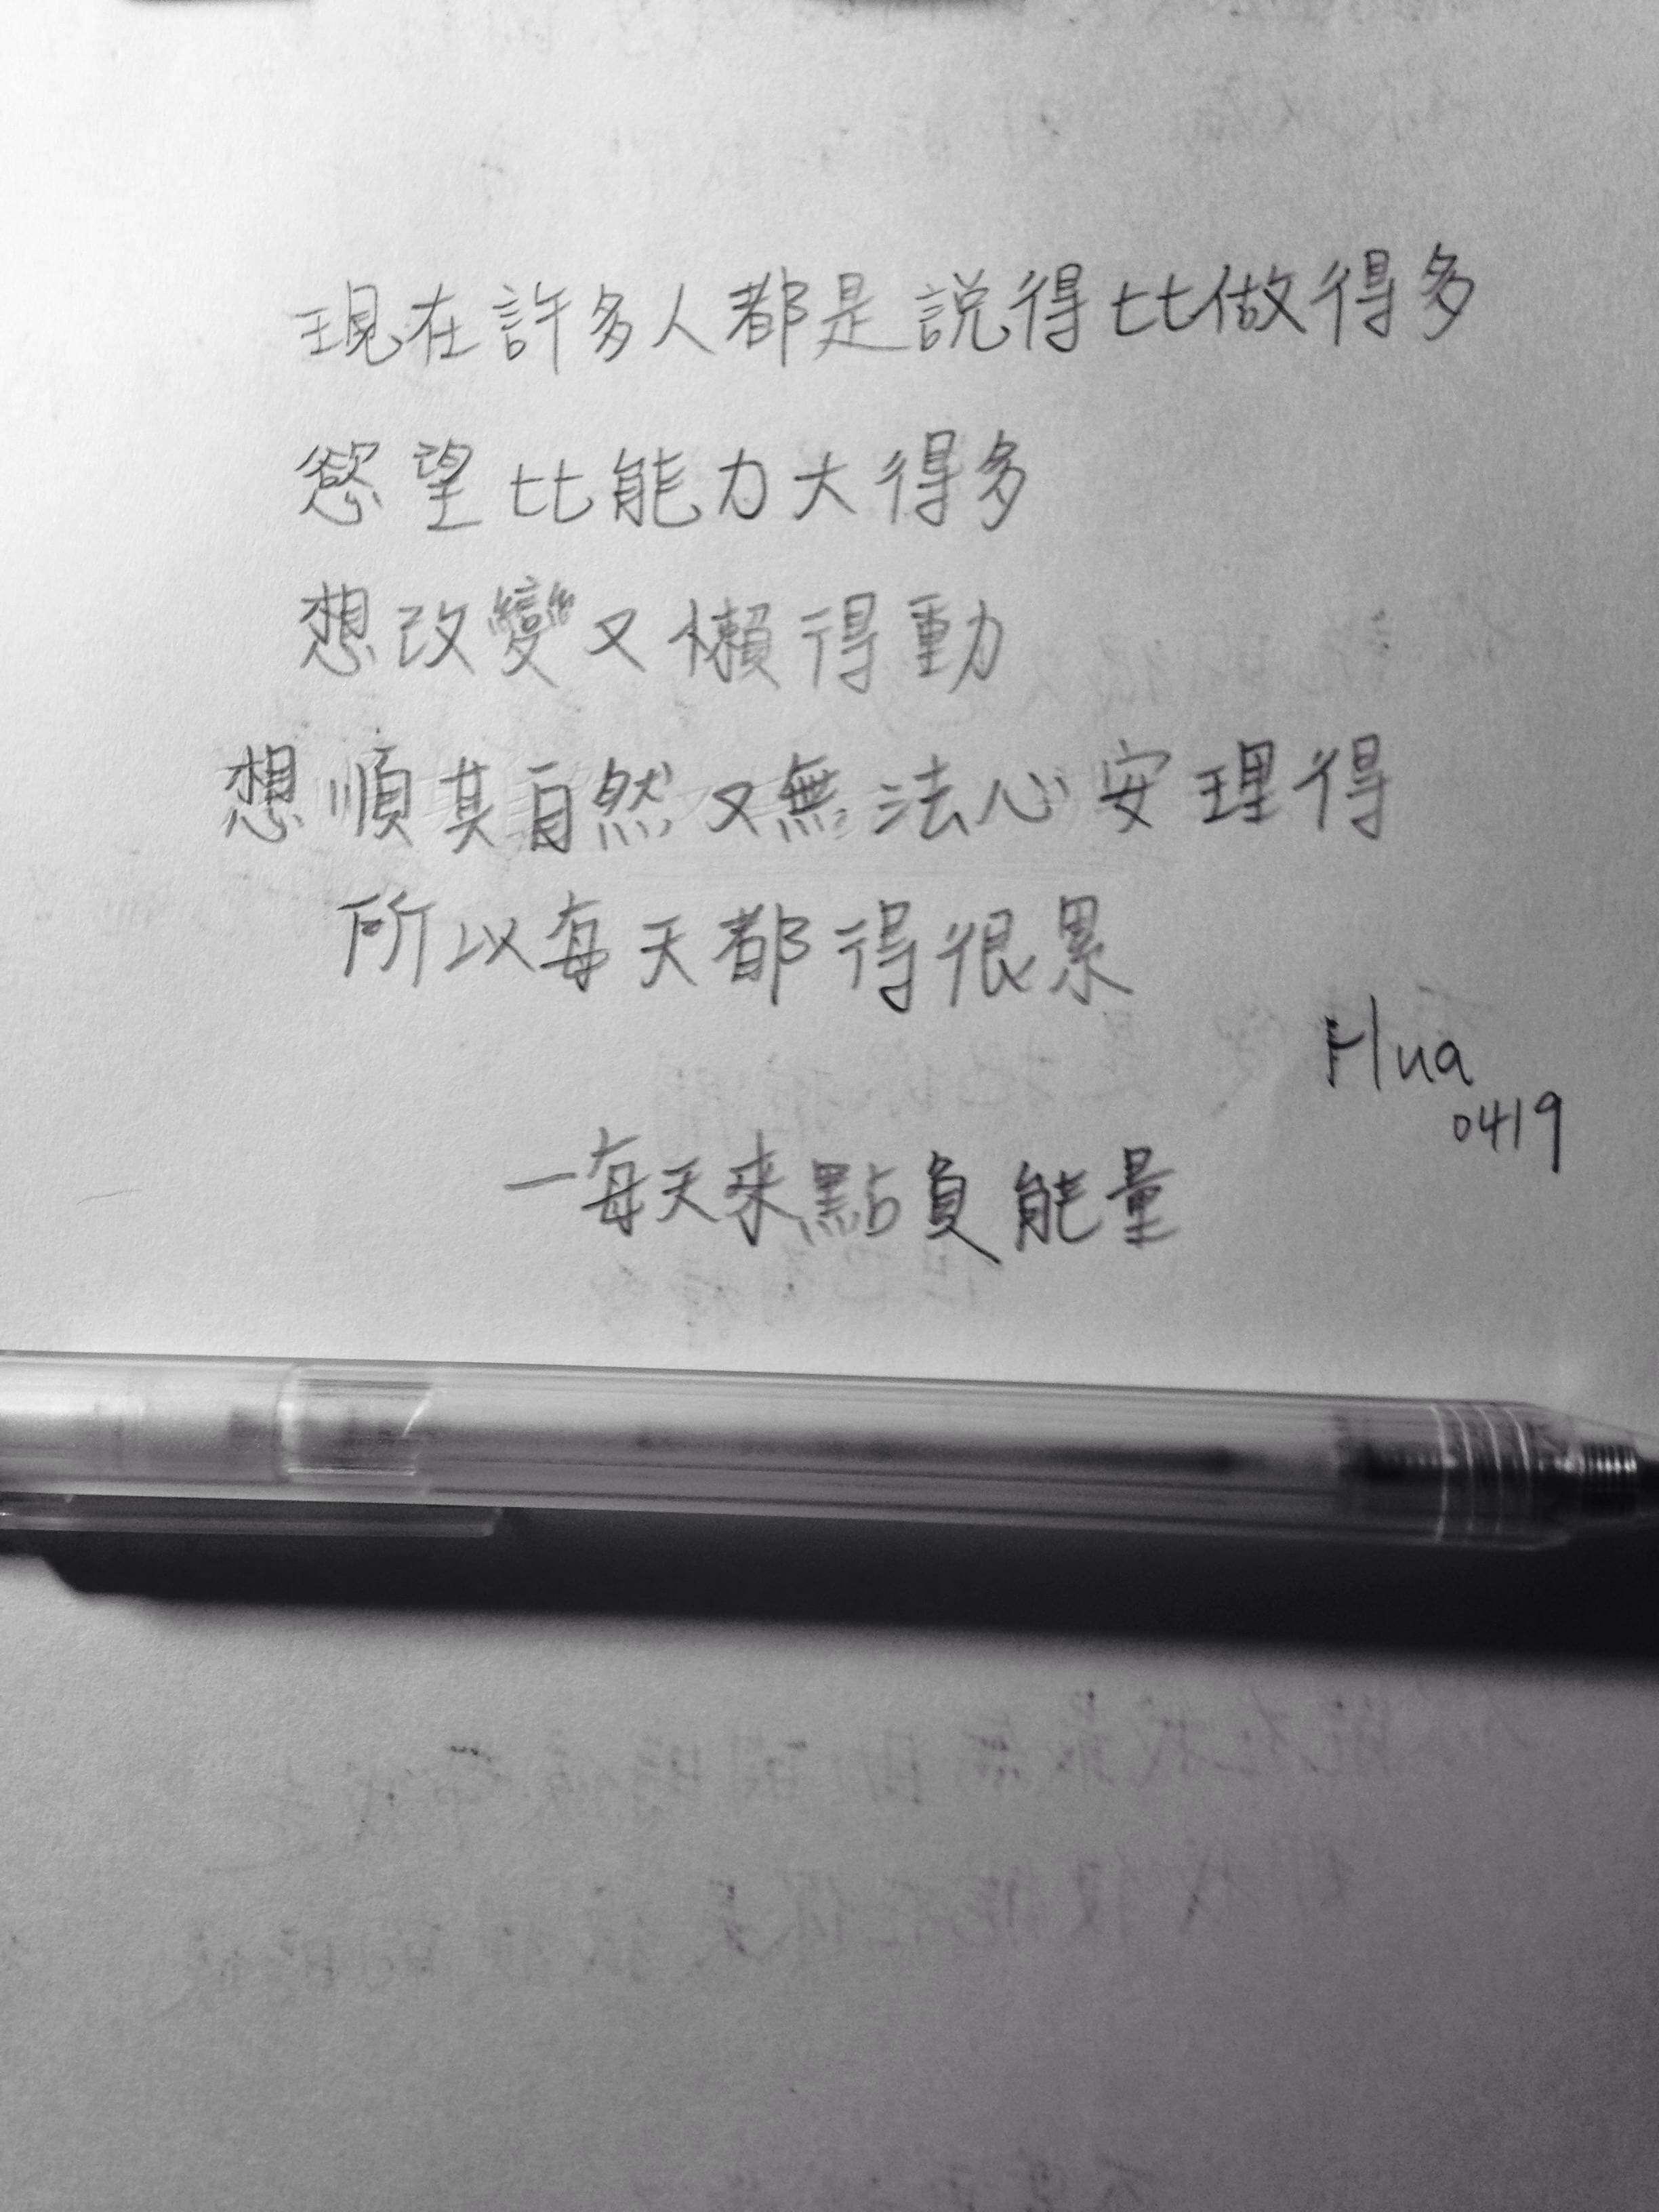 現在許多人都是說得比做得多
慾望比能力大得多
想改變又懶得動
想順其自然又無法心安理得
所以每天都得很累
Hua
0419
一每天來點負能量